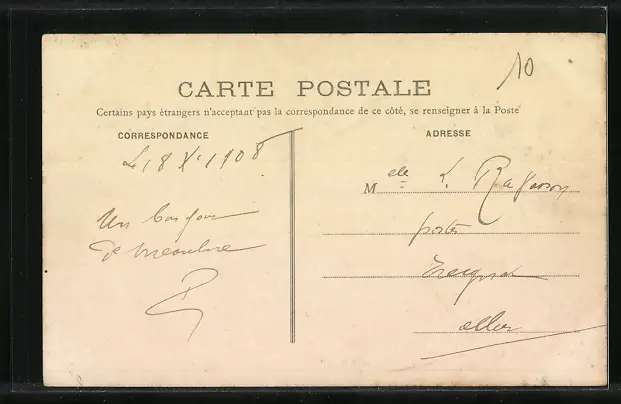 10
CARTE POSTALE
Certains pays étrangers n'acceptant pas la correspondance de ce côté, se renseigner à la Poste
CORRESPONDANCE
Le 18 X 1908
Un bonjour
de
ADRESSE
M elle L.
poste
allier